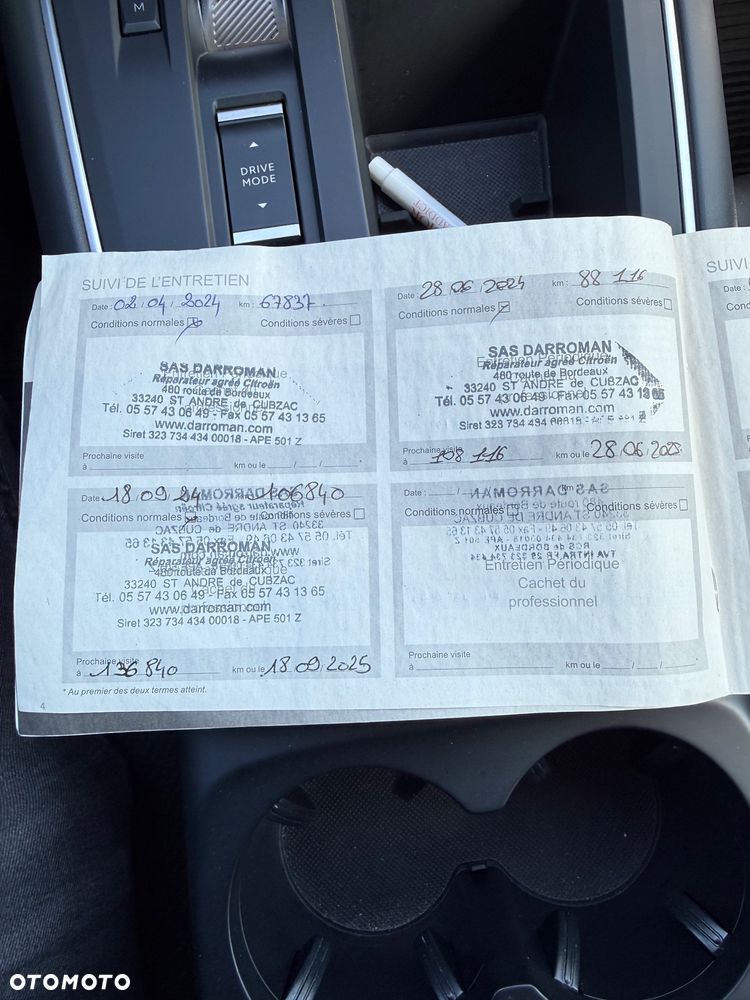 M
DRIVE
MODE
ADDICT
SUIVI DE L'ENTRETIEN
Date : 02 / 04 / 2024 km : 67837
Conditions normales Conditions sévères
SAS DARROMAN
Réparateur agréé Citroën
480 route de Bordeaux
33240 ST ANDRE de CUBZAC
Tél. 05 57 43 06 49 - Fax 05 57 43 13 65
www.darroman.com
Siret 323 734 434 00018 - APE 501 Z
Prochaine visite
à km ou le / /
Date : 28 / 06 / 2024 km : 88 116
Conditions normales Conditions sévères
SAS DARROMAN
Réparateur agréé Citroën
480 route de Bordeaux
33240 ST ANDRE de CUBZAC
Tél. 05 57 43 06 49 - Fax 05 57 43 13 65
www.darroman.com
Siret 323 734 434 00018 - APE 501 Z
Prochaine visite
à 108 116 km ou le 28 / 06 / 2025
Date : 18 09 24 106840
Conditions normales Conditions sévères
SAS DARROMAN
Réparateur agréé Citroën
480 route de Bordeaux
33240 ST ANDRE de CUBZAC
Tél. 05 57 43 06 49 - Fax 05 57 43 13 65
www.darroman.com
Siret 323 734 434 00018 - APE 501 Z
Prochaine visite
à 136 840 km ou le 18 / 09 / 2025
Date : / km
Conditions normales Conditions sévères
Entretien Périodique
Cachet du
professionnel
Prochaine visite
à km ou le / /
* Au premier des deux termes atteint.
4
SUIVI
OTOMOTO